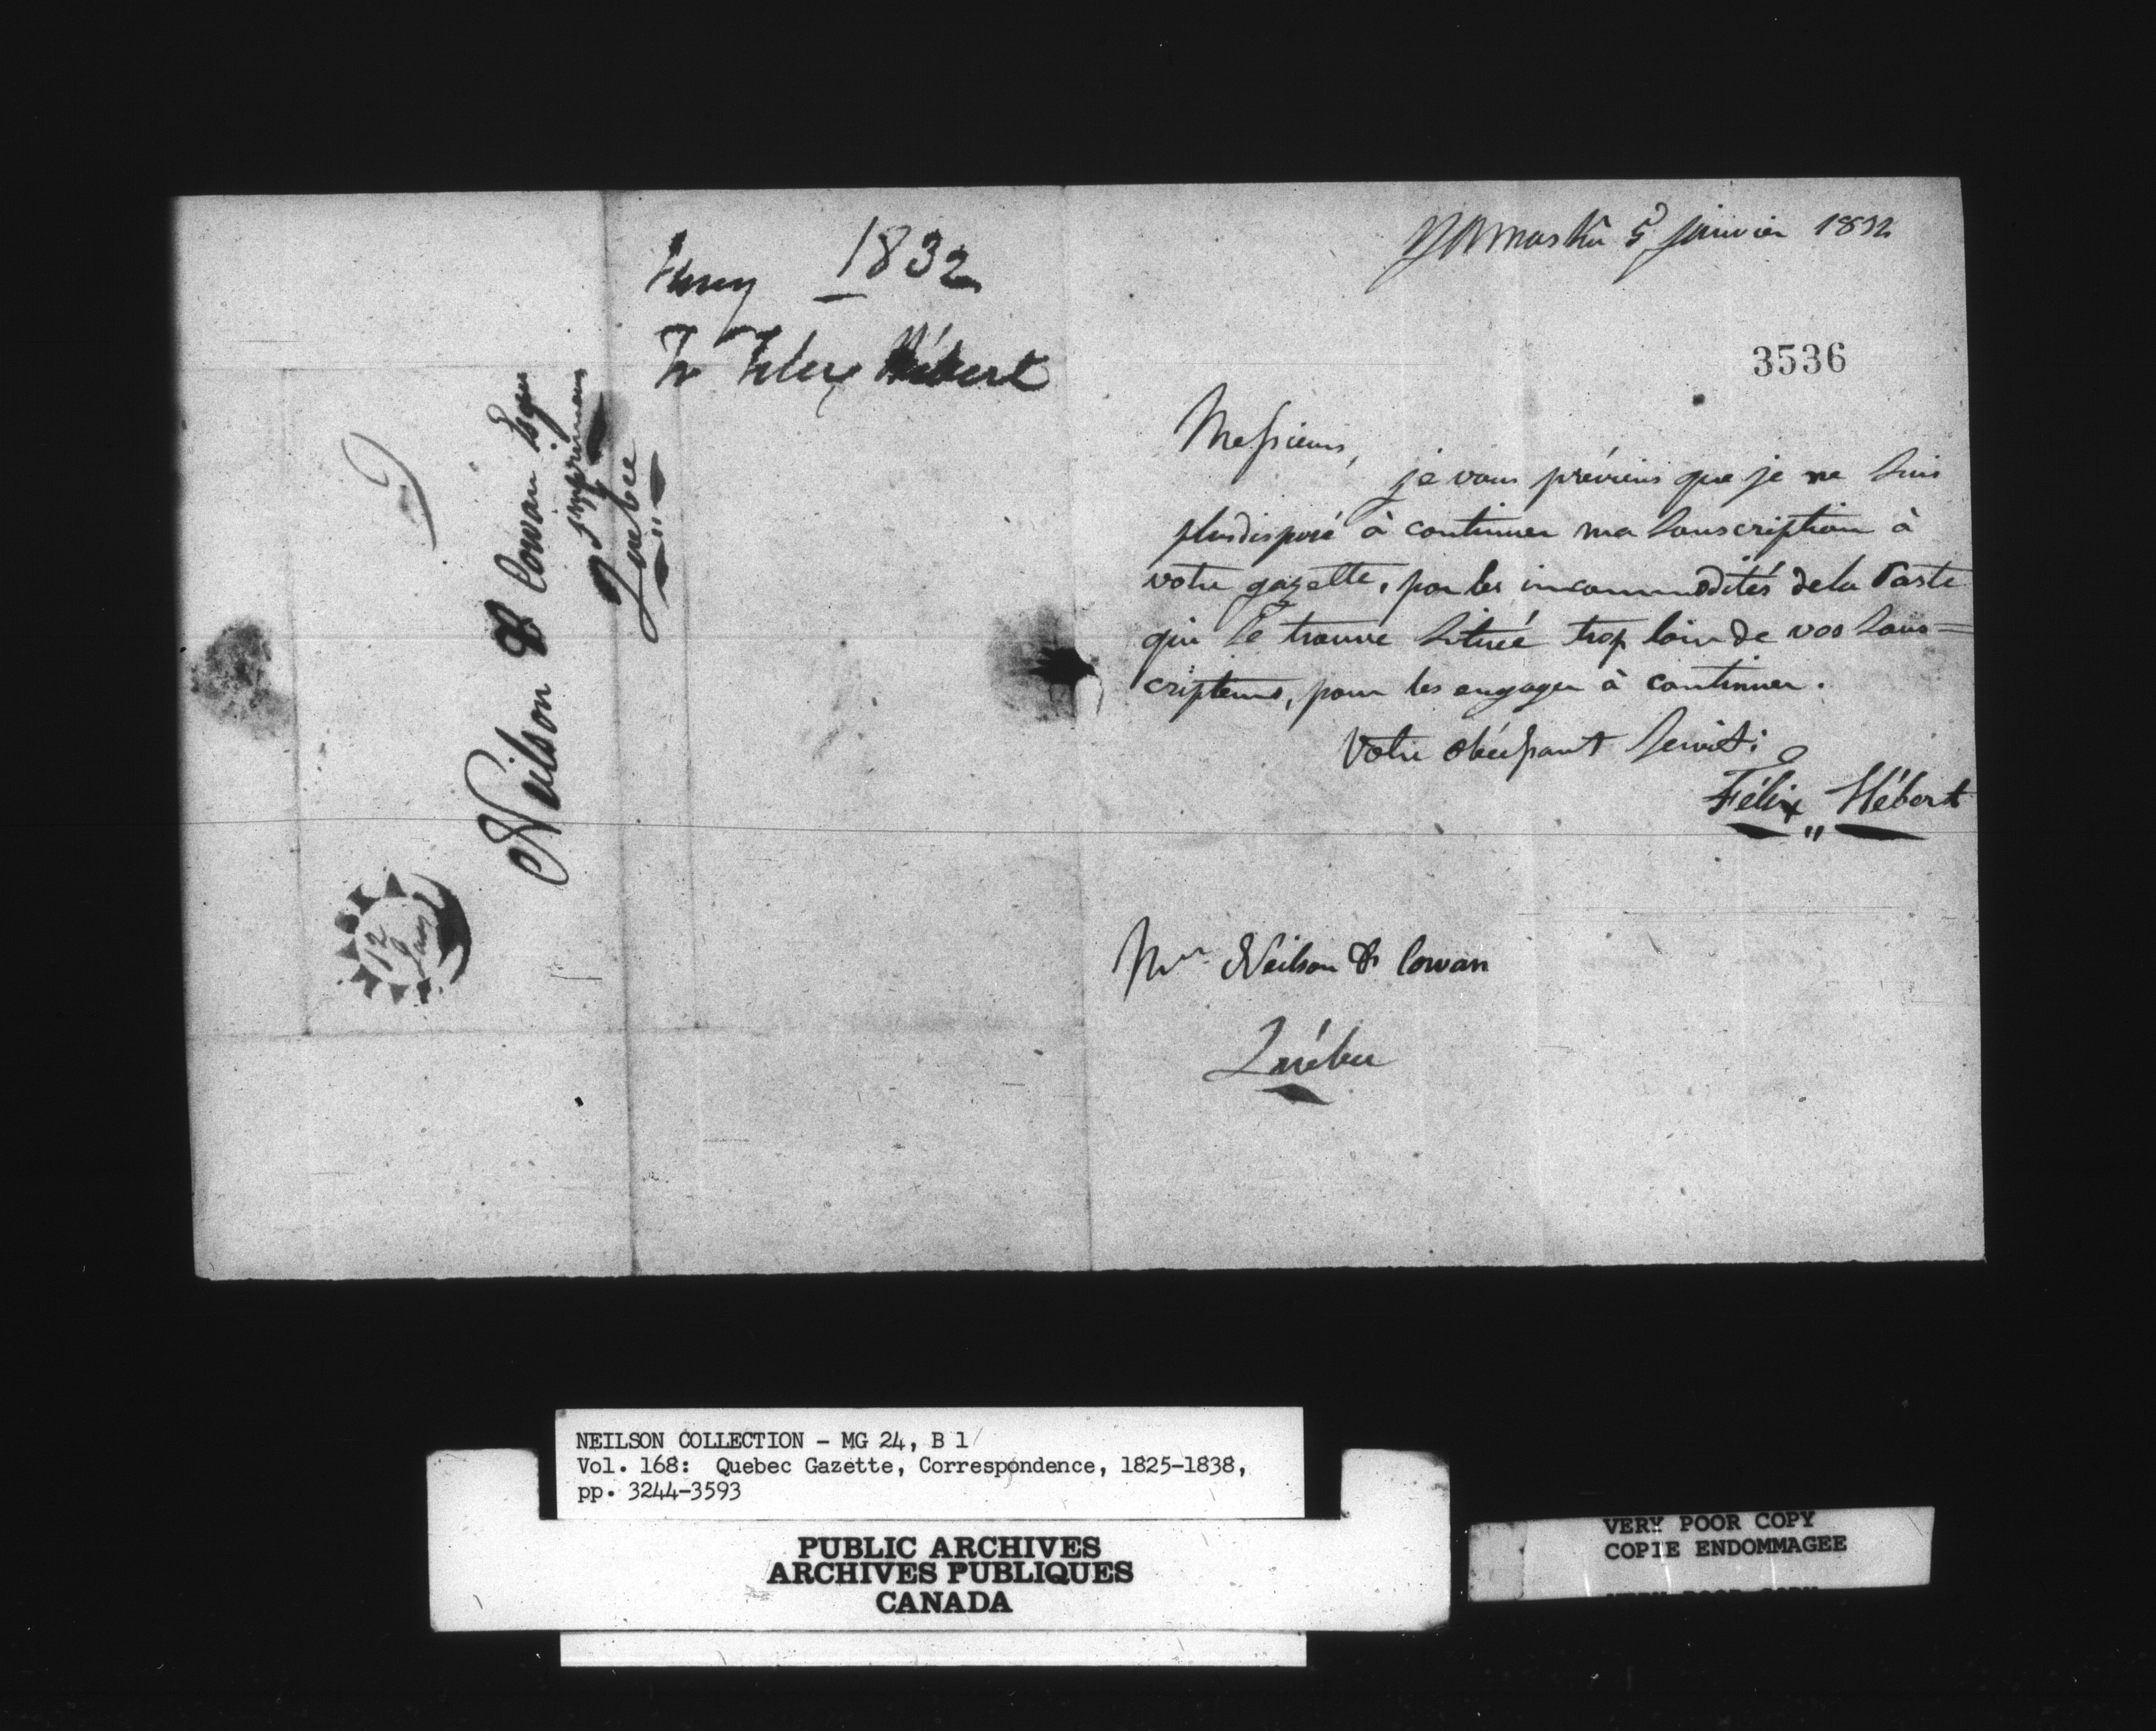 Yamaska 5 janvier 1832
3536
Messieurs,
je vous préviens que je ne suis
plus disposé à continuer ma souscription à
votre gazette, par les incommodités de la Poste
qui se trouve située trop loin de vos sous=
cripteurs, pour les engager à continuer.
Votre obéissant Servit:
Félix Hébert
Mrs Neilson & Cowan
Québec
1832
Felix Hébert
Neilson & Cowan Esqrs
Imprimeurs
Quebec
12
Jany
NEILSON COLLECTION - MG 24, B 1
Vol. 168: Quebec Gazette, Correspondence, 1825-1838,
pp. 3244-3593
PUBLIC ARCHIVES
ARCHIVES PUBLIQUES
CANADA
VERY POOR COPY
COPIE ENDOMMAGEE